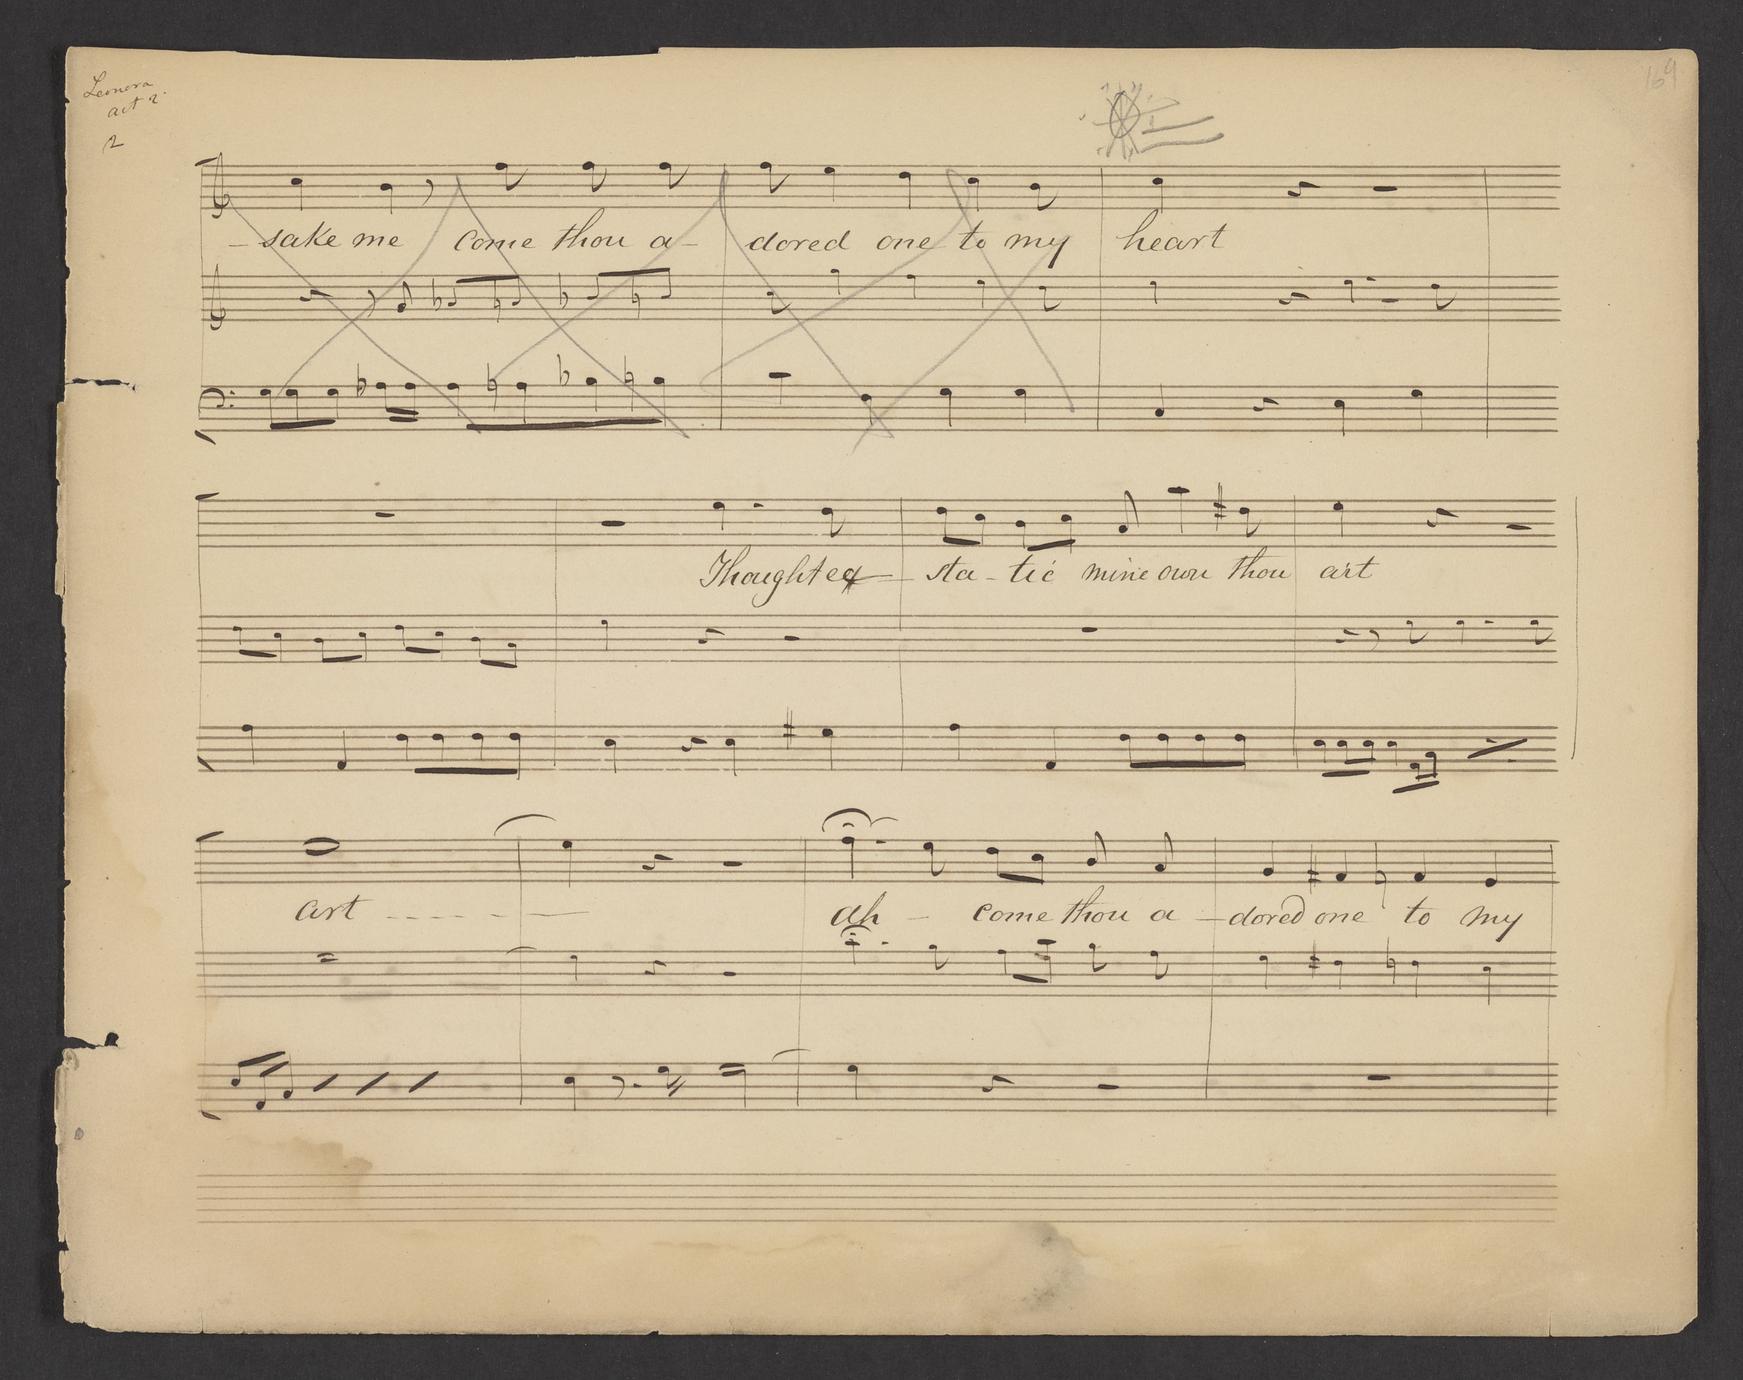 Leonora
act 2.
2
169
- sake me come thou a - dored one to my heart
Thought ex - sta - tic mine own thou art
art - - - - - - ah - come thou a - dored one to my